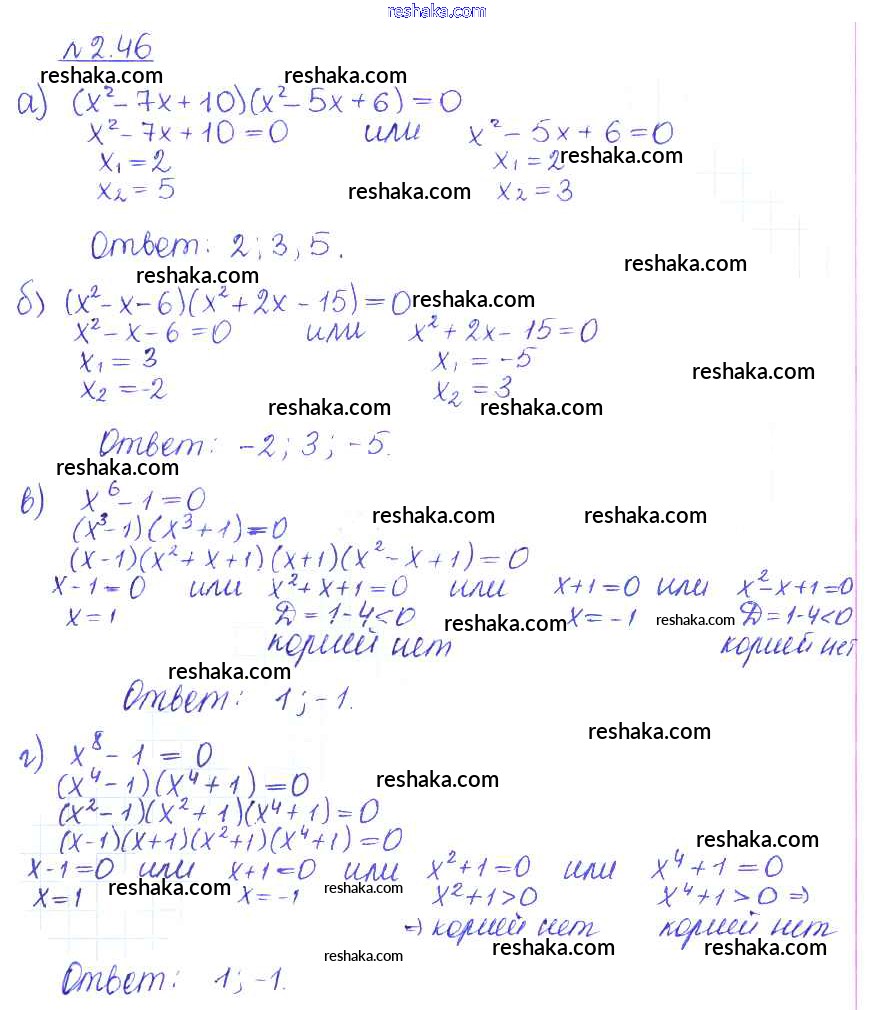 www.reshaka.com
№ 2.46
reshaka.com reshaka.com
а) (x² - 7x + 10)(x² - 5x + 6) = 0
x² - 7x + 10 = 0 или x² - 5x + 6 = 0
x₁ = 2 x₁ = 2 reshaka.com
x₂ = 5 reshaka.com x₂ = 3
Ответ: 2; 3, 5.
reshaka.com reshaka.com
б) (x² - x - 6)(x² + 2x - 15) = 0 reshaka.com
x² - x - 6 = 0 или x² + 2x - 15 = 0
x₁ = 3 x₁ = -5
x₂ = -2 x₂ = 3 reshaka.com
reshaka.com reshaka.com
Ответ: -2; 3; -5.
reshaka.com
в) x⁶ - 1 = 0
(x³ - 1)(x³ + 1) = 0 reshaka.com reshaka.com
(x - 1)(x² + x + 1)(x + 1)(x² - x + 1) = 0
x - 1 = 0 или x² + x + 1 = 0 или x + 1 = 0 или x² - x + 1 = 0
x = 1 Д = 1 - 4 < 0 reshaka.com x = -1 reshaka.com Д = 1 - 4 < 0
корней нет корней нет
reshaka.com
Ответ: 1; -1.
reshaka.com
г) x⁸ - 1 = 0
(x⁴ - 1)(x⁴ + 1) = 0 reshaka.com
(x² - 1)(x² + 1)(x⁴ + 1) = 0
(x - 1)(x + 1)(x² + 1)(x⁴ + 1) = 0 reshaka.com
x - 1 = 0 или x + 1 = 0 или x² + 1 = 0 или x⁴ + 1 = 0
x = 1 reshaka.com x = -1 reshaka.com x² + 1 > 0 x⁴ + 1 > 0 ⇒
⇒ корней нет корней нет
reshaka.com reshaka.com reshaka.com
Ответ: 1; -1.